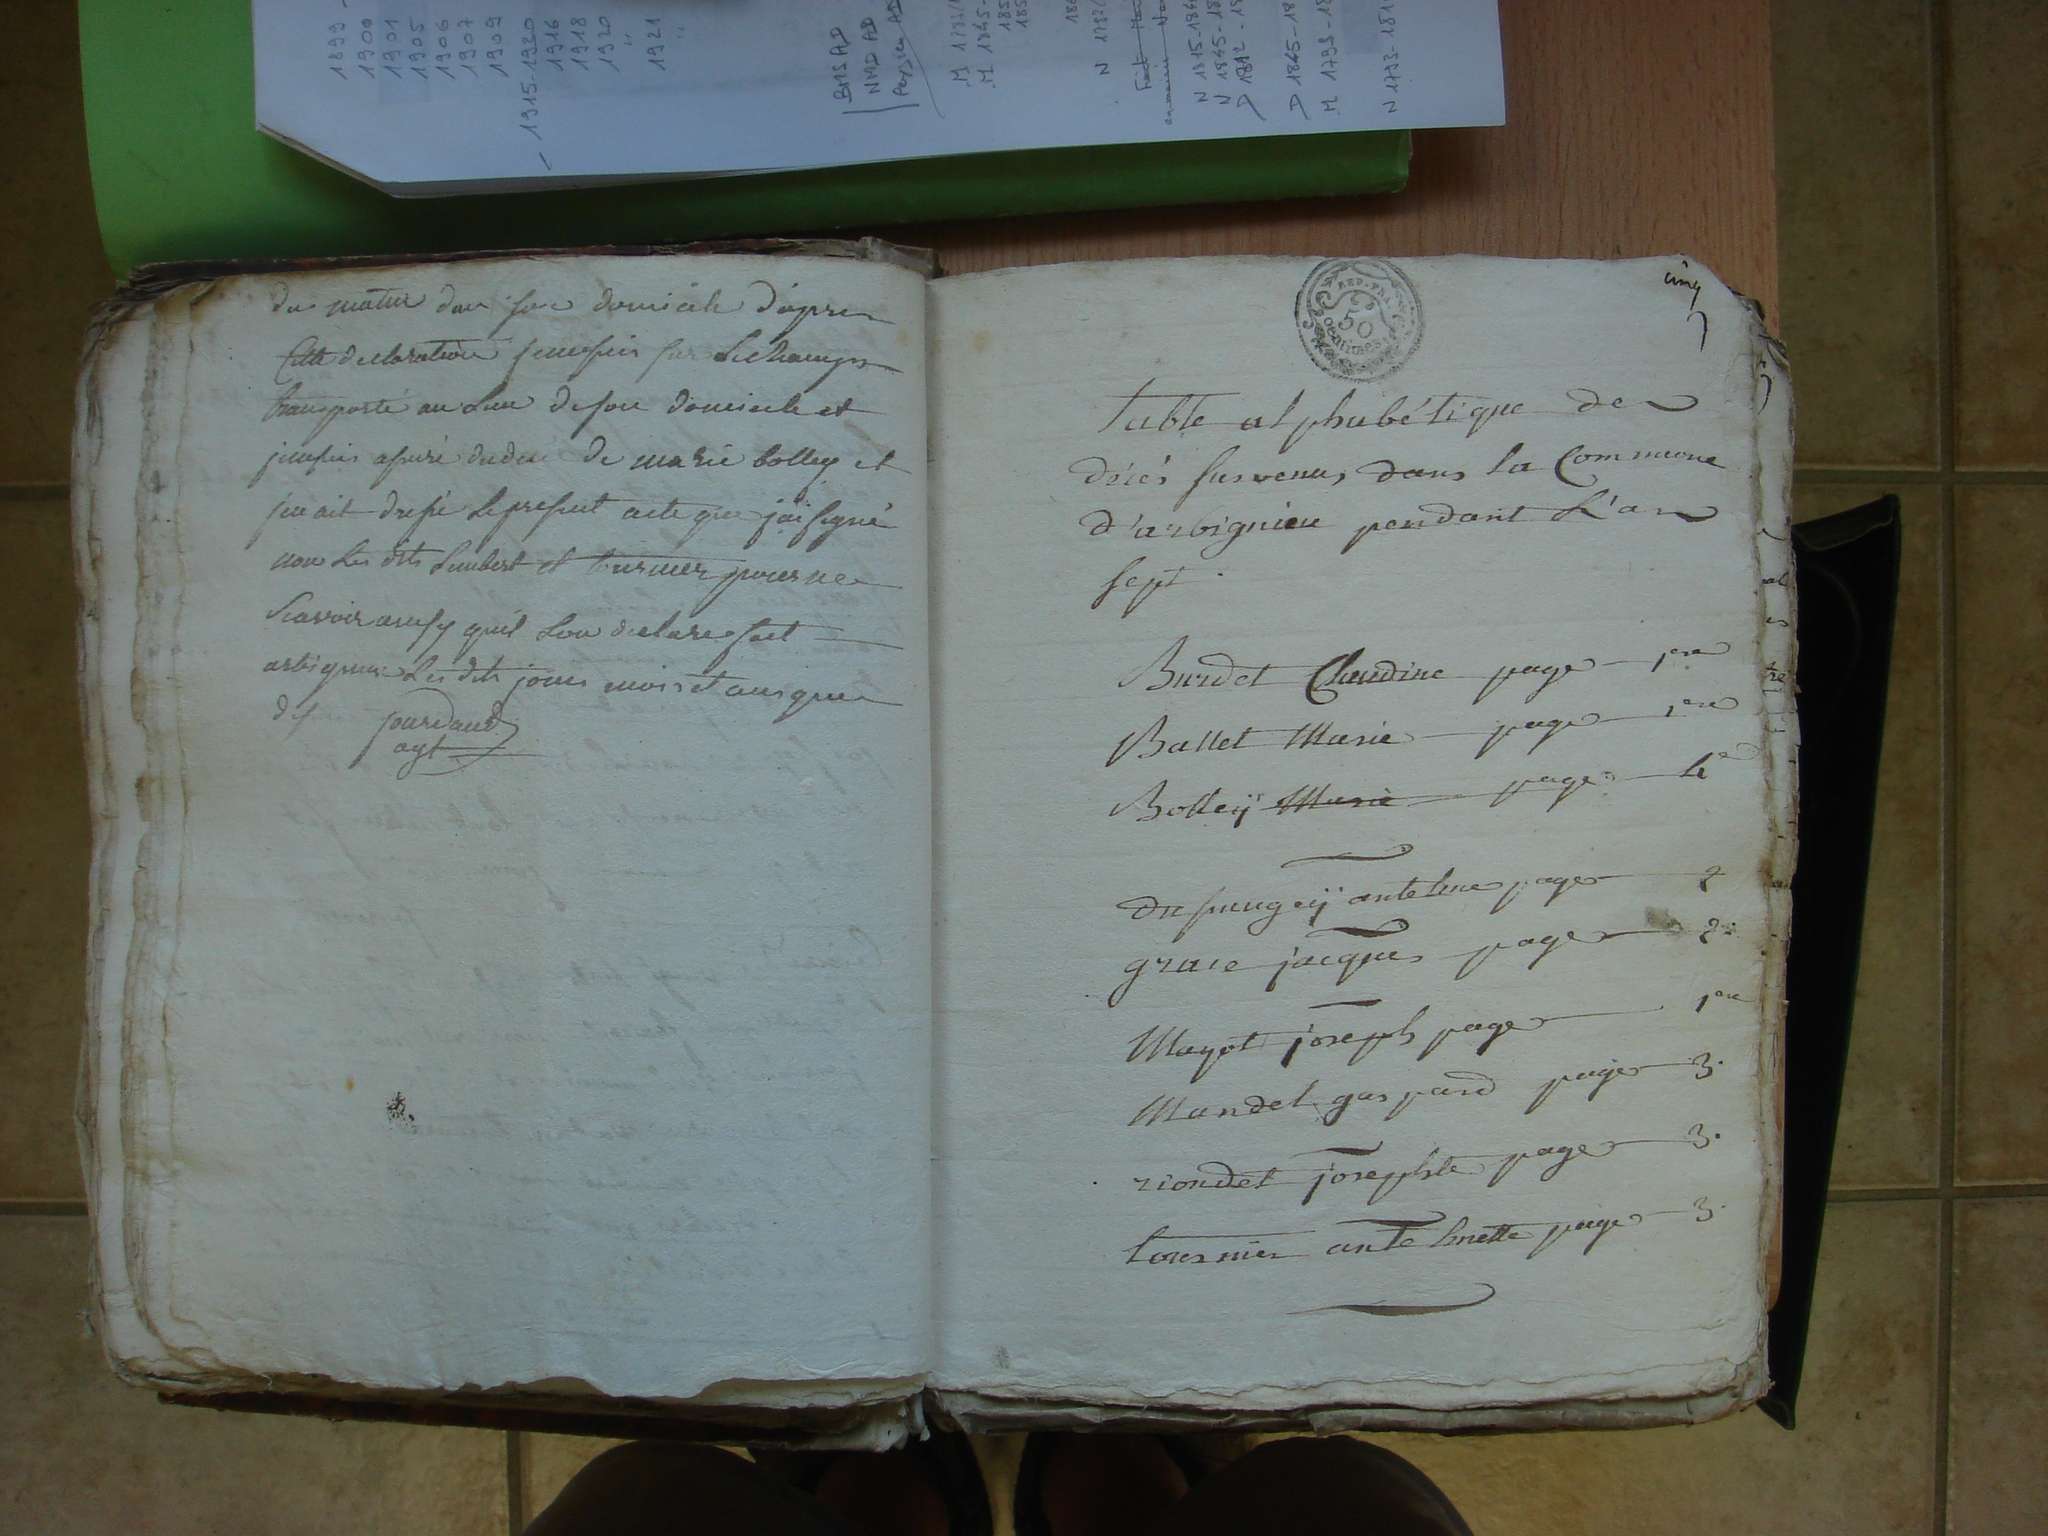 1899 -
1900
1901
1905
1906
1907
1909
1915-1920
1916
1918
1920
1921
BMS AD
NMD AD
M 1793
M 1845-
N 1793
N 1815-
N 1845-18
D 1812 - 18
D 1845-18
M 1793 - 18
N 1793-181
domicile d'apres
Cette declaration je me suis sur le Champ
transporté au Lieu de son domicile et
je me suis assuré du deces de marie bolley et
j'en ait dressé le present acte que j'ai signé
non Les dits Humbert et tournier pour ne
Scavoir ainsy quil L'on declare fait
arbignieu Les dits jours mois et an que
jourdand
agt
cinq
REP. FRA.
50
centimes
Table alphabétique des
décés survenus dans la Commune
d'arbignieu pendant L'an
sept
Burdet Claudine page 1ere
Ballet Marie page 1ere
Bolleÿ Marie page 4e
antelme page 2
grace jacques page 2
Mayot joseph page 1ere
Mandel gaspard page 3.
riondet josephte page 3.
tournier antelmette page 3.